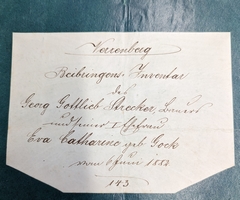 Verrenberg
Beibringens Inventar
des
Georg Gottlieb Strecker, Bauers
und seiner I Ehefrau
Eva Catharine geb Gock
vom 6 Juni 1882
143